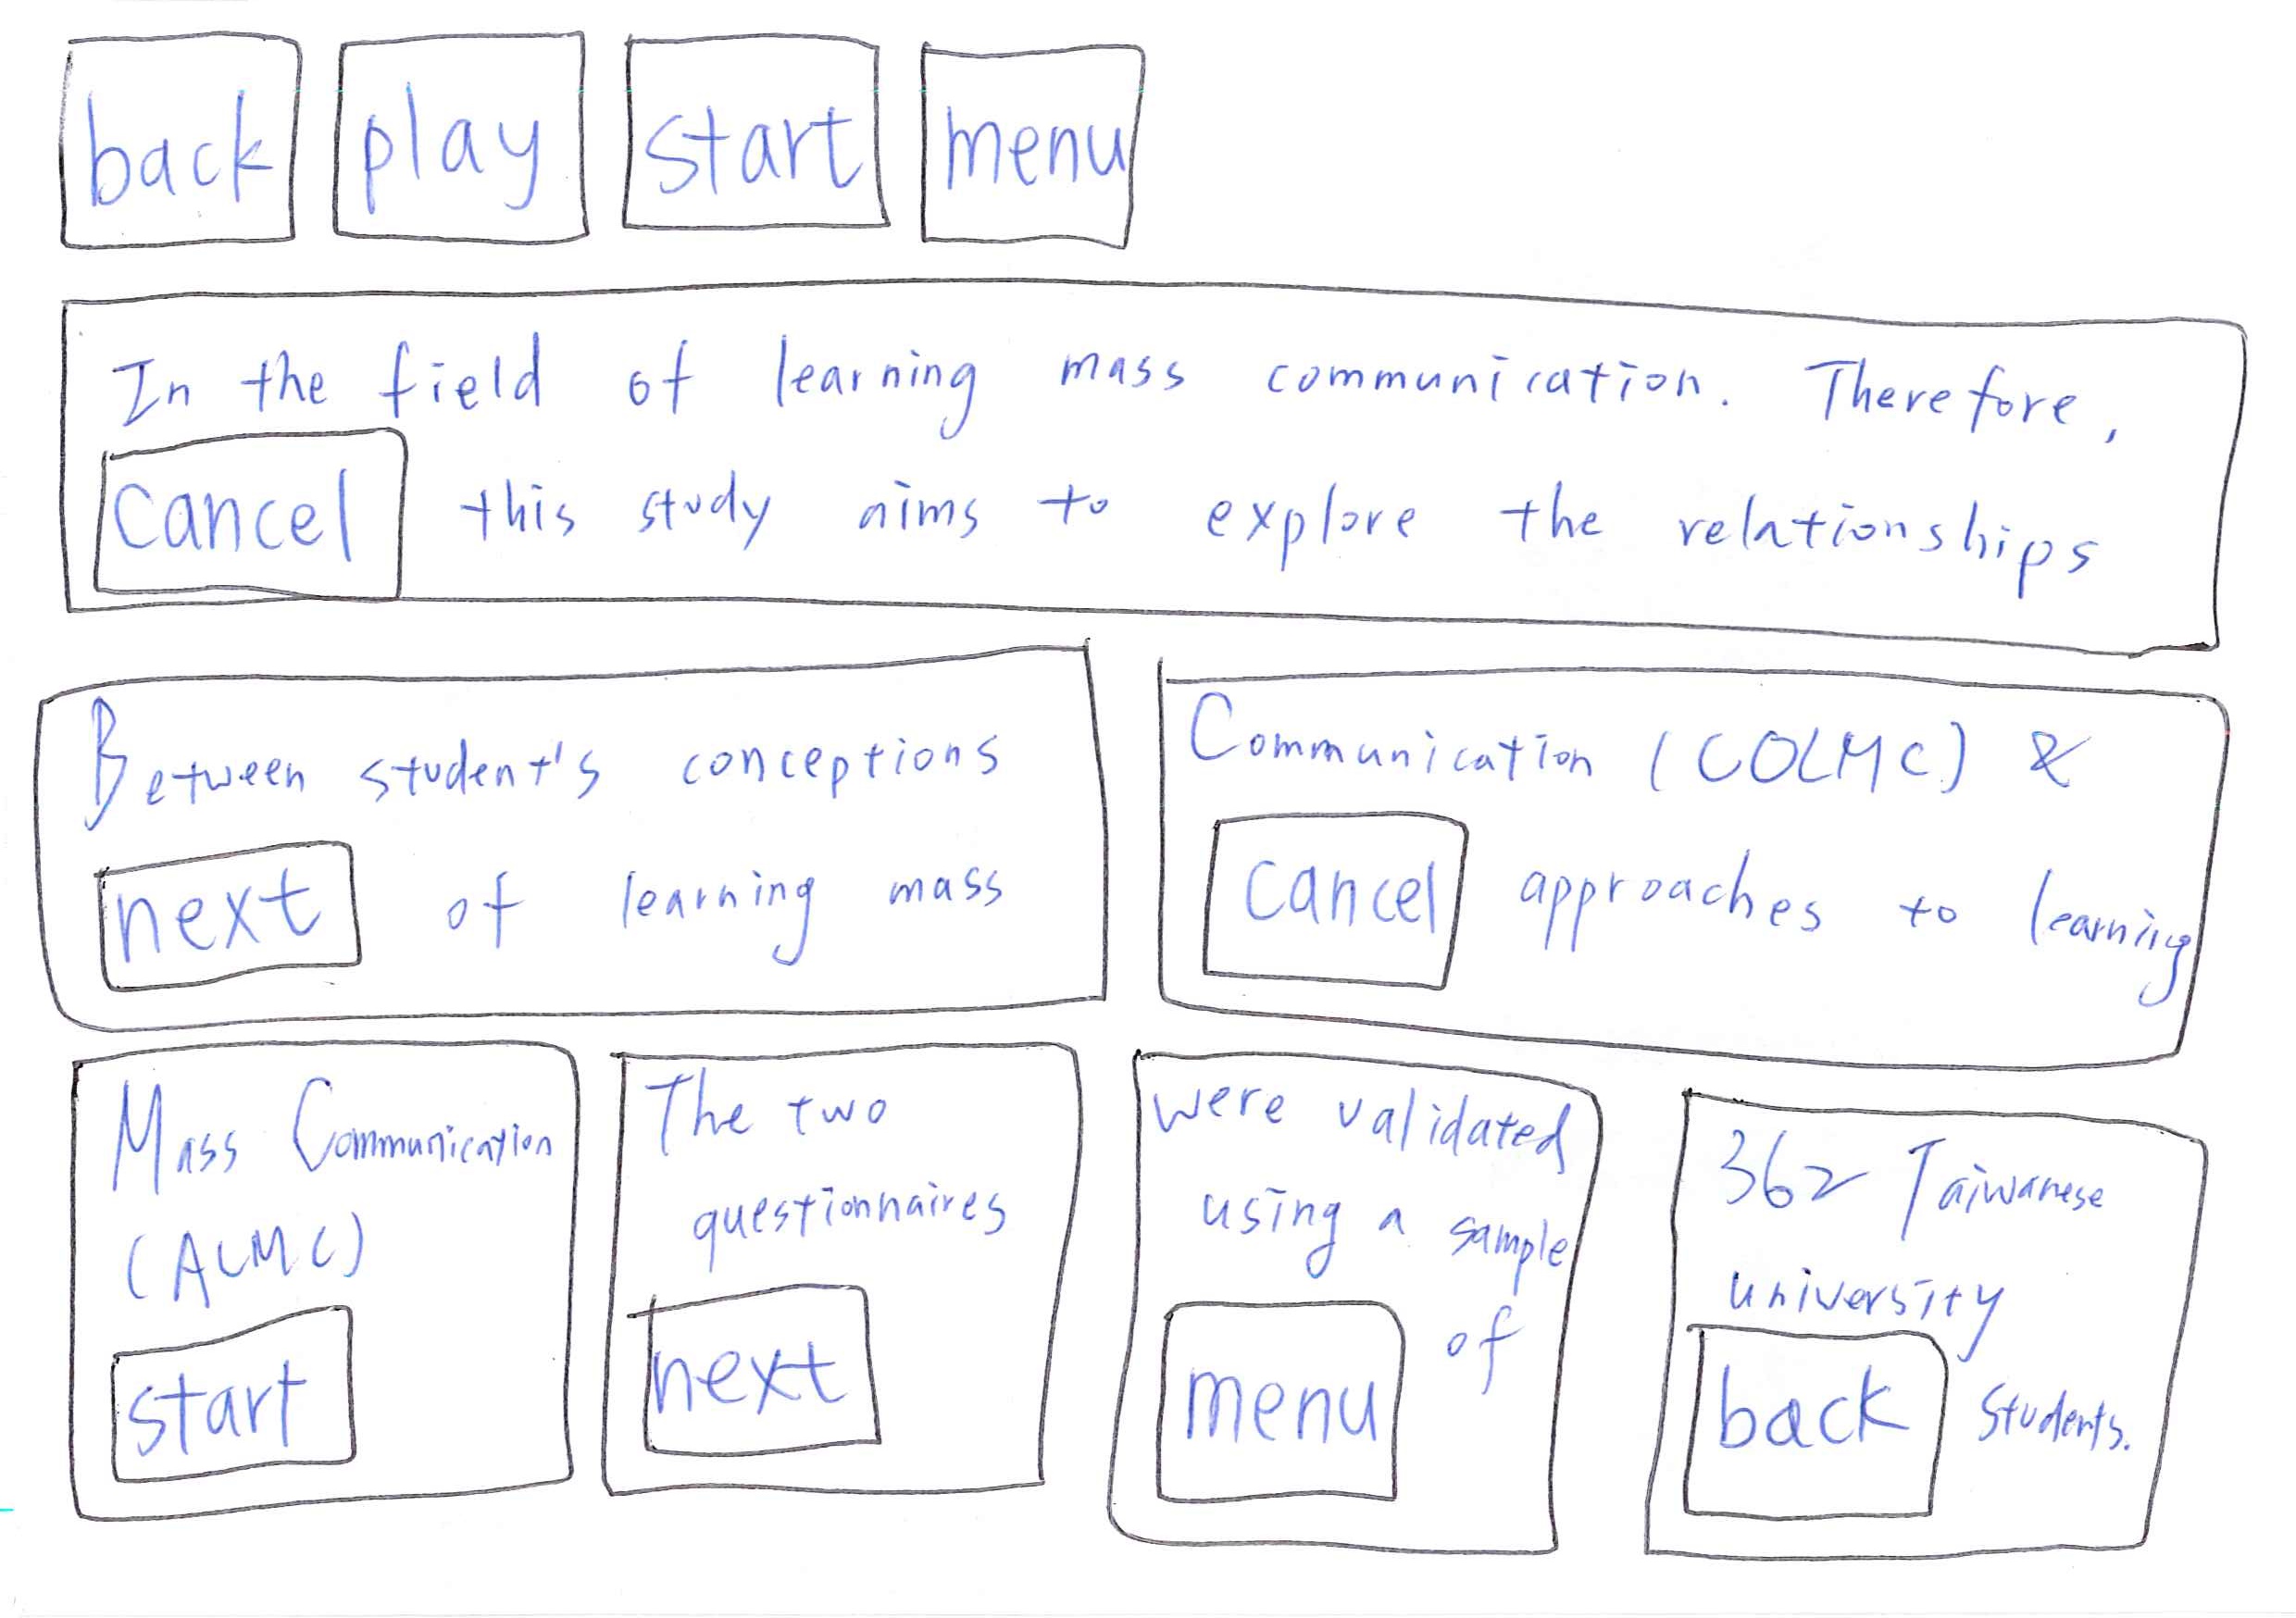 back play start menu
In the field of learning mass communication. Therefore,
cancel this study aims to explore the relationships
Between student's conceptions
next of learning mass
Communication (COLMC) &
cancel approaches to learning
Mass Communication
(ALMC)
start
The two
questionnaires
next
were validated
using a sample
of
menu
362 Taiwanese
university
back students.